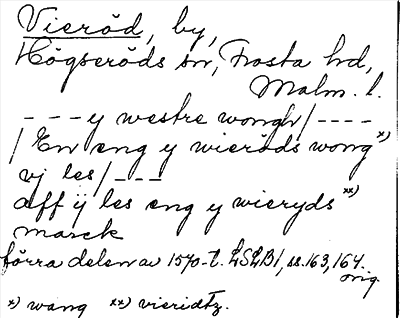 Vieröd, by,
Högseröds sn, Frosta hd,
Malm. l.
- - - y westre wongh / - - - -
/ En eng y wieröds wong *)
vj les / - - -
aff ij les eng y wieryds **)
marck
förra delen av 1570-t. LSLB1, ss. 163, 164.
orig.
*) wang **) vieridtz.